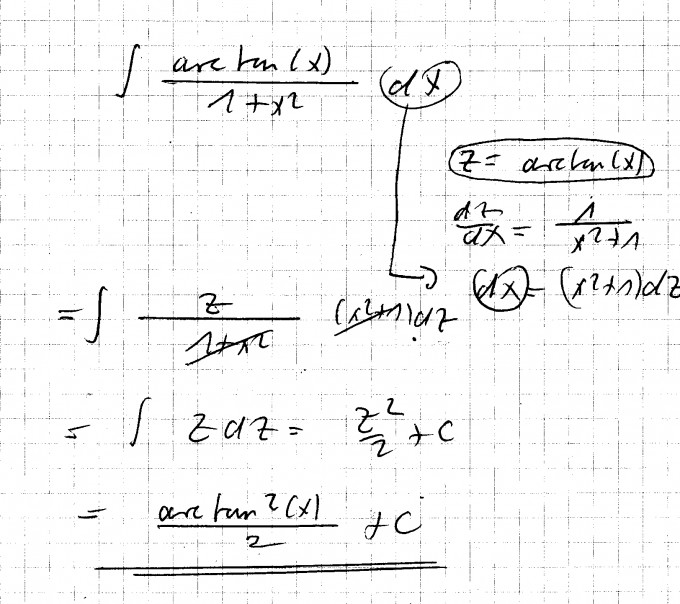 ∫ arctan(x)/(1+x²) dx
z = arctan(x)
dz/dx = 1/(x²+1)
dx = (x²+1)dz
= ∫ z/(1+x²) (x²+1)dz
= ∫ z dz = z²/2 + C
= arctan²(x)/2 + C